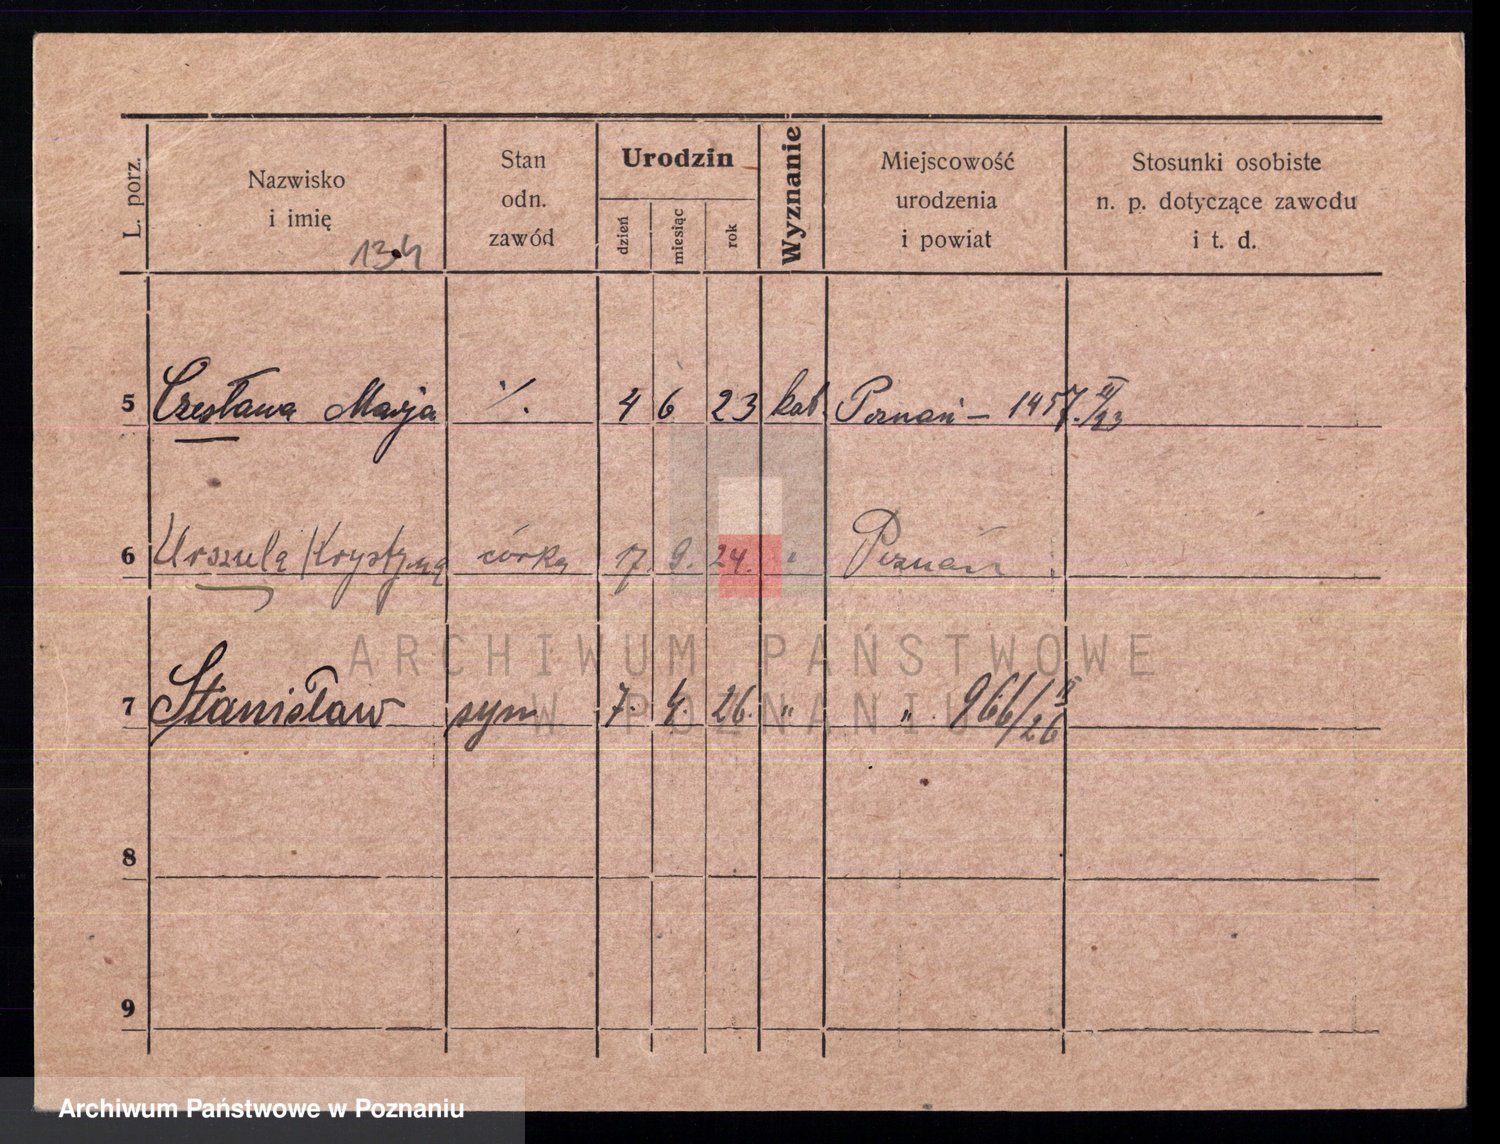 L. porz. Nazwisko i imię Stan odn. zawód Urodzin dzień miesiąc rok Wyznanie Miejscowość urodzenia i powiat Stosunki osobiste n. p. dotyczące zawodu i t. d.
134
5 Czesława Marja ·/. 4 6 23 kat. Poznań – 1457. II/23
6 Urszula Krystyna córka 17. 9. 24. " Poznań
7 Stanisław syn 7. 4. 26. " " 966/26 II
8
9
ARCHIWUM PAŃSTWOWE
W POZNANIU
Archiwum Państwowe w Poznaniu